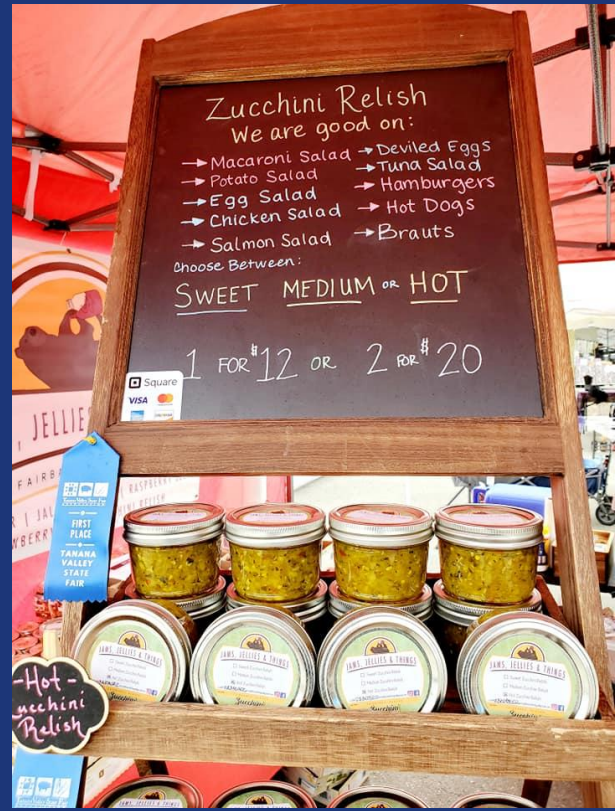 Zucchini Relish
We are good on:
→ Macaroni Salad
→ Potato Salad
→ Egg Salad
→ Chicken Salad
→ Salmon Salad
→ Deviled Eggs
→ Tuna Salad
→ Hamburgers
→ Hot Dogs
→ Brauts
Choose Between:
SWEET MEDIUM OR HOT
1 FOR $12 OR 2 FOR $20
Square
VISA
, JELLIE
FAIRB
RASPBERRY
FIRST
PLACE
TANANA
VALLEY
STATE
FAIR
-Hot-
ucchini
Relish
JAMS, JELLIES & THINGS
Zucchini
JAMS, JELLIES & THINGS
Zucchini
JAMS, JELLIES & THINGS
Zucchini
JAMS, JELLIES & THINGS
Zucchini